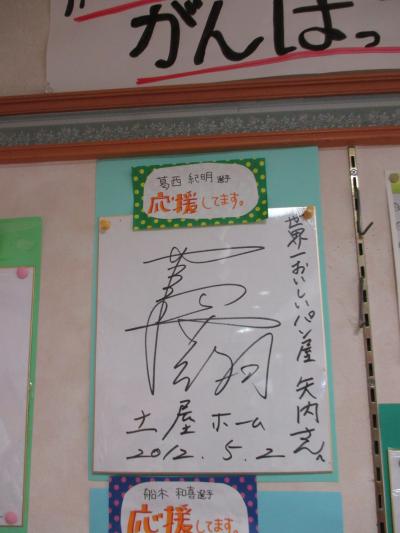 がんばっ
葛西 紀明 選手
応援してます。
世界一おいしいパン屋 矢内さんへ
土屋ホーム
2012.5.2
船木 和喜選手
応援してます。